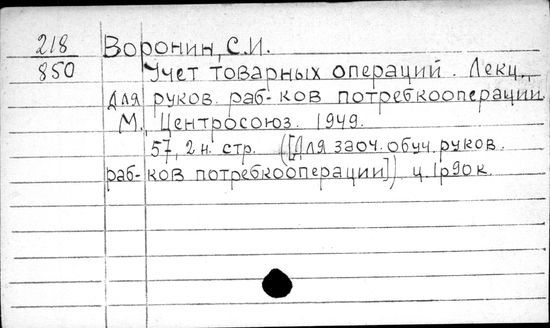 218 Воронин, С.И.
850 Учет товарных операций. Лекц.,
для руков. раб-ков потребкооперации.
М., Центросоюз. 1949.
57, 2 н. стр. ([Для заоч. обуч. руков.
раб-ков потребкооперации]) ц. 1р90к.